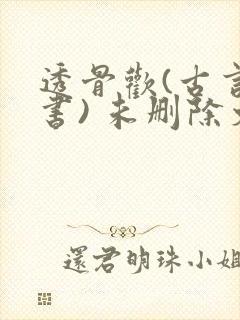 透骨歡(古言
書)未刪除
還君明珠小姐